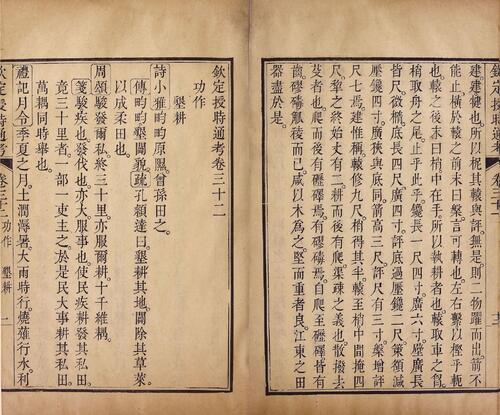 欽定授時通考
建建犍也。所以柅其轅與評。無是則二物躍而出。箭不
能止橫於轅之前末曰槃。言可轉也。左右繫以樫乎軛
也。轅之後末曰梢。中在手。所以執耕者也。轅取車之胷。
梢取舟之尾。止乎此乎。鑱長一尺四寸。廣六寸。壁廣長
皆尺。微橢。底長四尺。廣四寸。評底過壓鑱二尺。策額減
壓鑱四寸。廣狹與底同。箭高三尺。評尺有三寸。槃增評
尺七焉。建惟稱。轅修九尺。梢得其半。轅至梢中間掩四
尺。犂之終始丈有二。耕而後有爬。渠疎之義也。散撥去
芟者也。爬而後有礰礋焉。有磟碡焉。自爬至礰礋皆有
齒。磟碡觚稜而已。咸以木為之。堅而重者良。江東之田
器盡於是。
欽定授時通考卷三十二
功作
墾耕
詩小雅畇畇原隰。曾孫田之。
傳畇畇。墾闢貌。疏孔穎達曰。墾耕其地。闢除其草萊。
以成柔田也。
周頌駿發爾私。終三十里。亦服爾耕。十千維耦。
箋駿疾也。發伐也。亦大。服事也。使民疾耕發其私田。
竟三十里者。一部一吏主之。於是民大事耕其私田。
萬耦同時舉也。
禮記月令季夏之月。土潤溽暑。大雨時行。燒薙行水。利
欽定授時通考 卷三十二 功作 墾耕 一